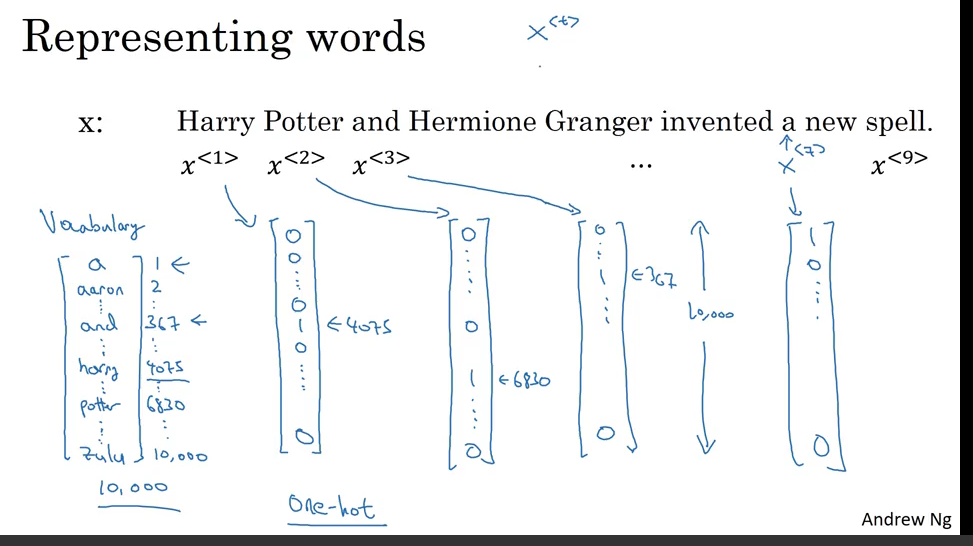 Representing words
x<t>
x: Harry Potter and Hermione Granger invented a new spell.
x<1> x<2> x<3> ... x<7> x<9>
Vocabulary
a 1 ←
aaron 2
and 367 ←
harry 4075
potter 6830
zulu 10,000
10,000
0
0
0
1 ← 4075
0
0
0
0
1 ← 6830
0
0
1 ← 367
0
10,000
1
0
0
One-hot
Andrew Ng